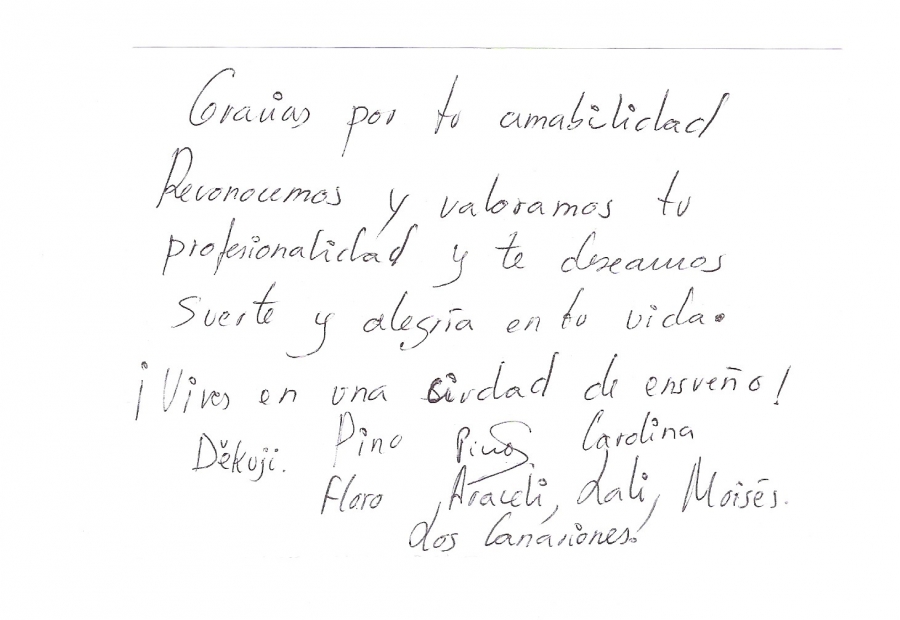 Gracias por tu amabilidad
Reconocemos y valoramos tu
profesionalidad y te deseamos
suerte y alegría en tu vida.
¡Vives en una ciudad de ensueño!
Děkuji. Pino Pino Carolina
Floro, Araceli, Lali, Moisés.
Los Canariones.